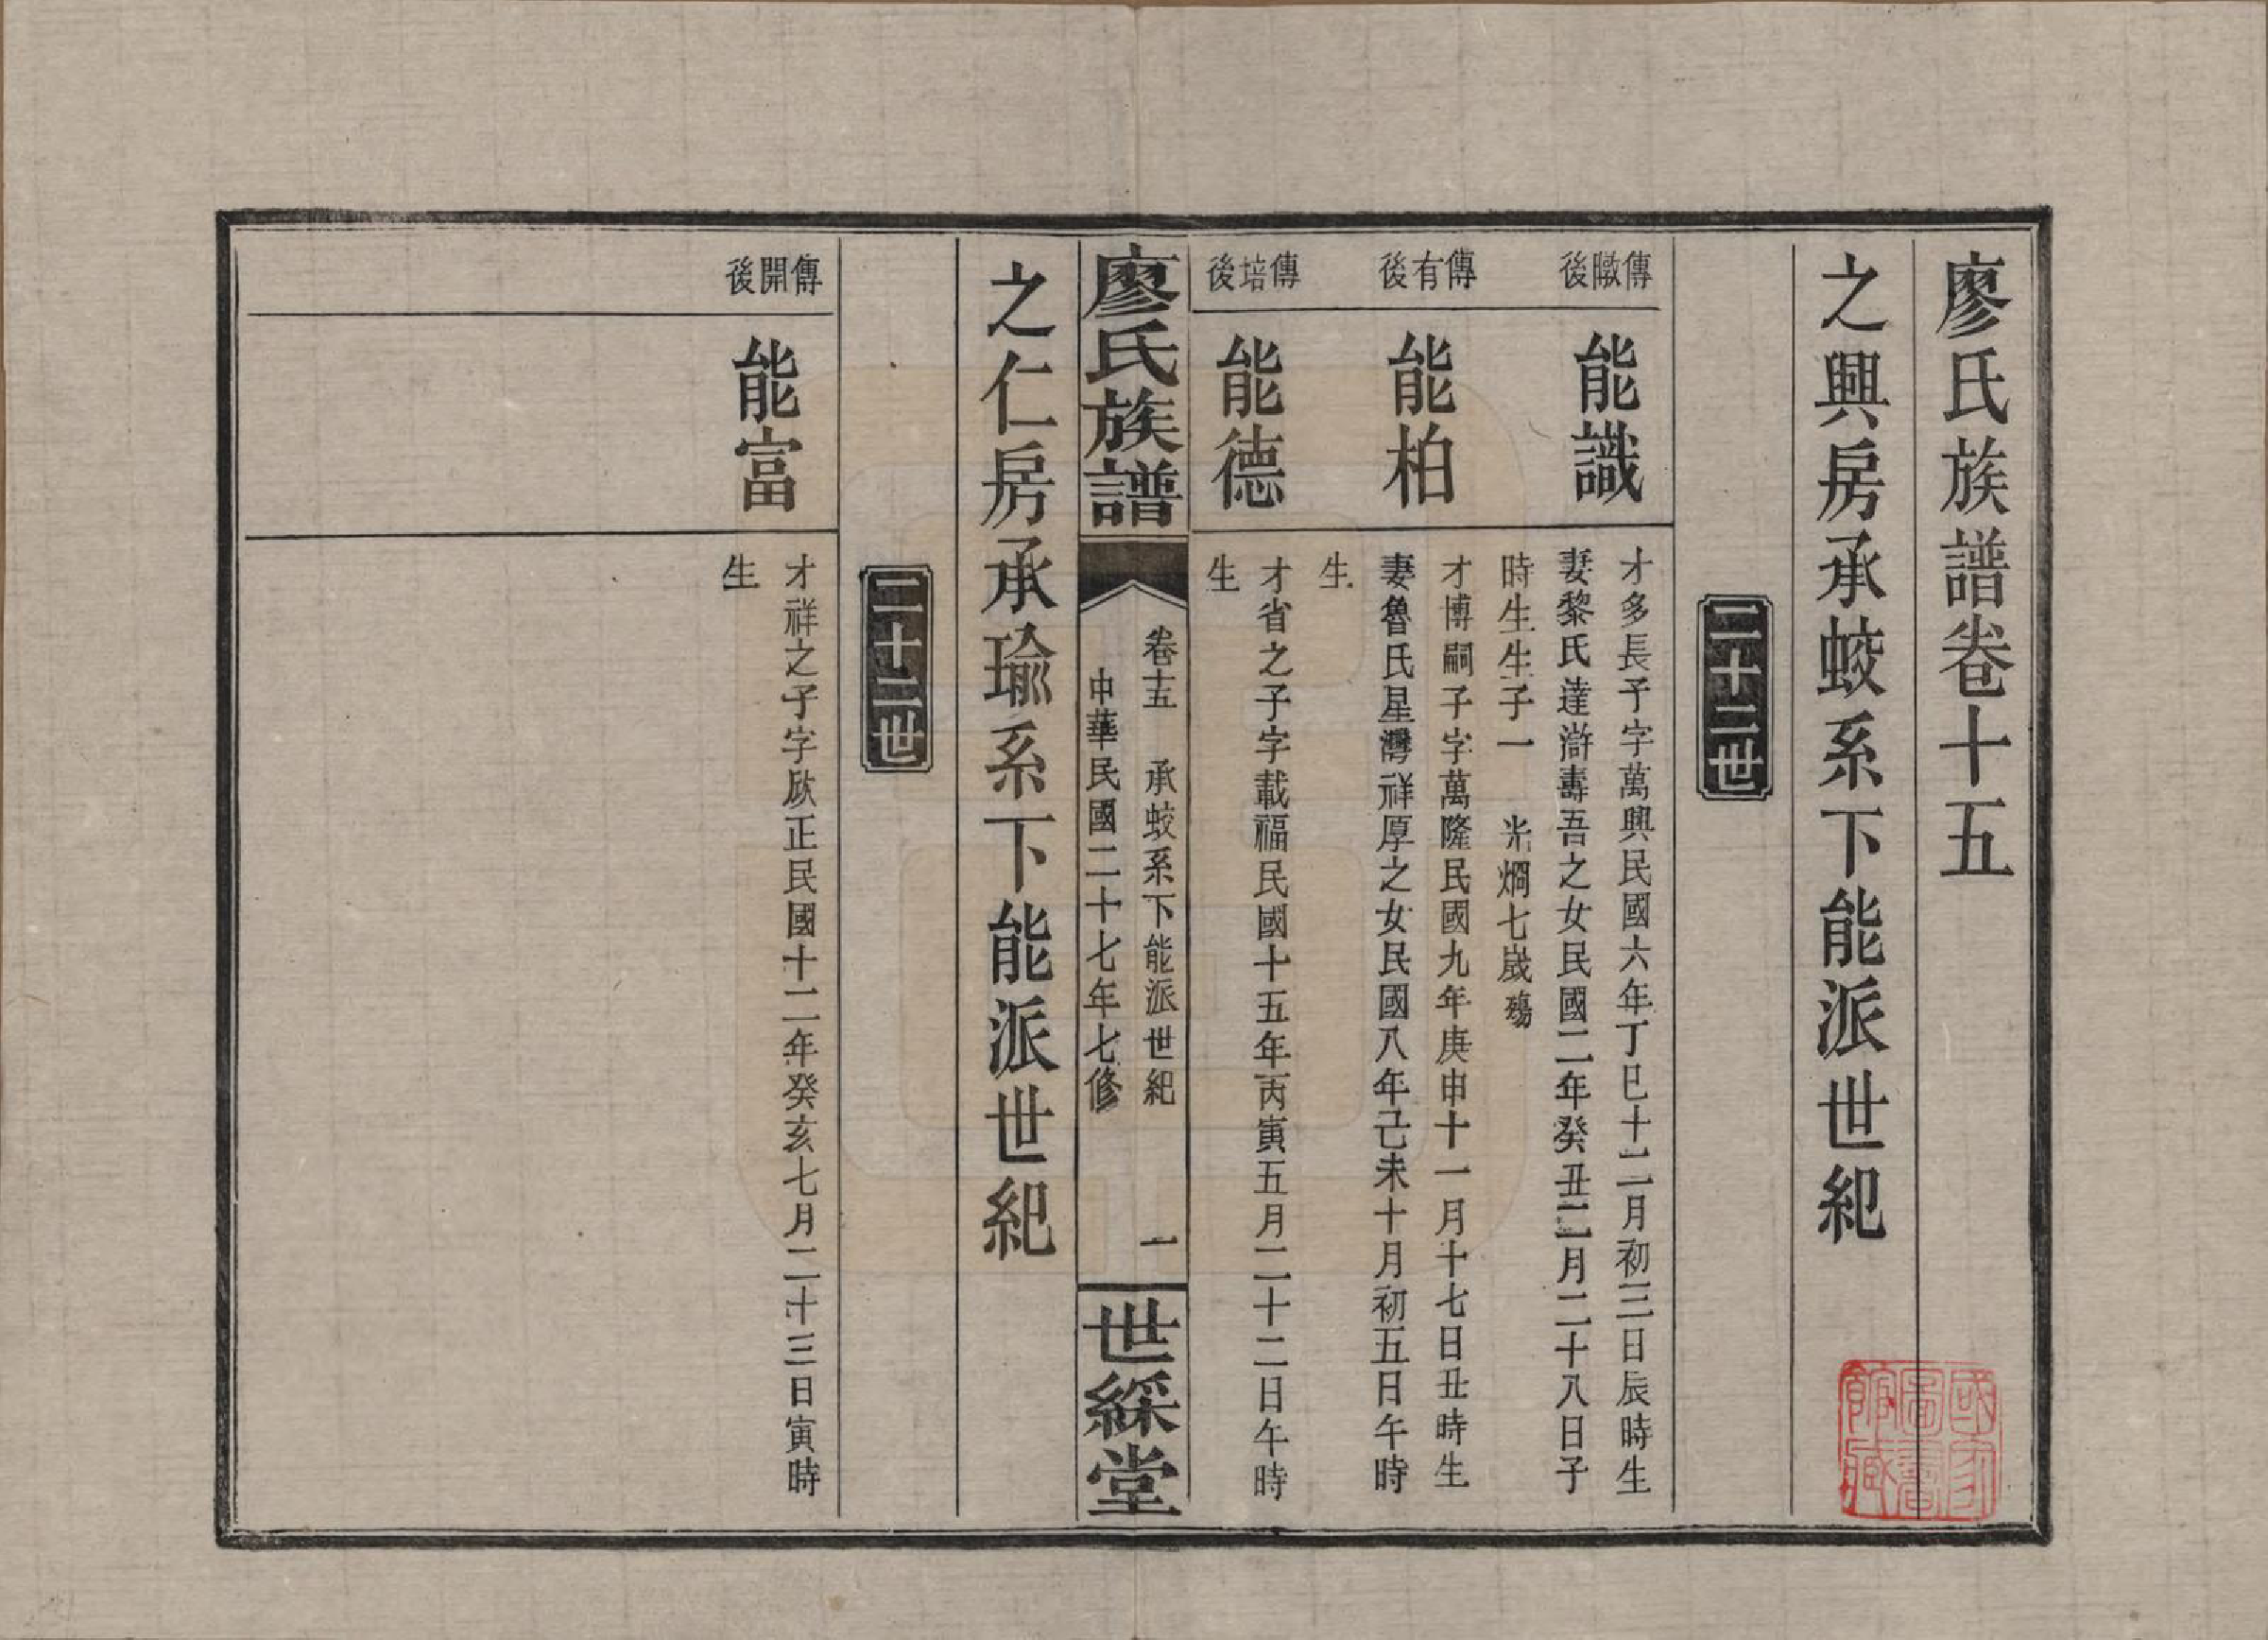 廖氏族譜卷十五
之興房承蛟系下能派世紀
二十二世
傳暾後
能識
才多長子字萬興民國六年丁巳十二月初三日辰時生
妻黎氏達滸壽吾之女民國二年癸丑二月二十八日子
時生生子一 光燗七歲殤
傳有後
能柏
才博嗣子字萬隆民國九年庚申十一月十七日丑時生
妻魯氏星灣祥厚之女民國八年己未十月初五日午時
生
傳培後
能德
才省之子字載福民國十五年丙寅五月二十二日午時
生
廖氏族譜
卷十五 承蛟系下能派世紀 一
中華民國二十七年七修
世綵堂
之仁房承瑜系下能派世紀
二十二世
傳開後
能富
才祥之子字欣正民國十二年癸亥七月二十三日寅時
生
國家圖書館藏